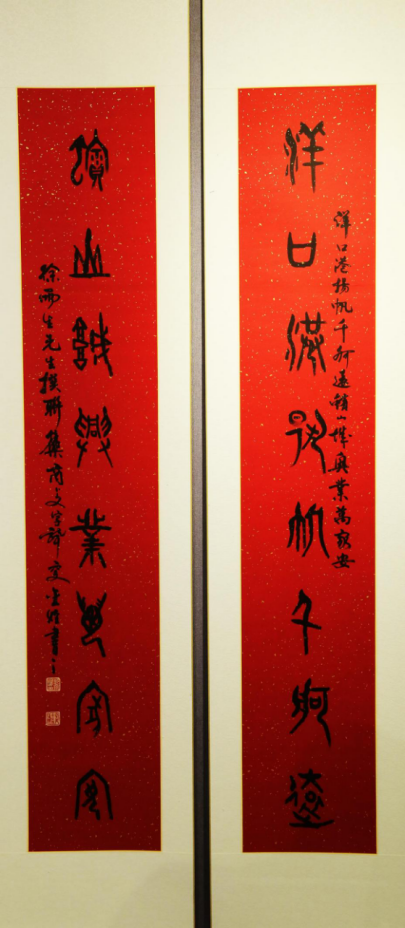 洋口港揚帆千舸遠
洋口港揚帆千舸遠蠙山城興業萬家安
蠙山城興業萬家安
徐雨生先生撰聯集商文字 書之